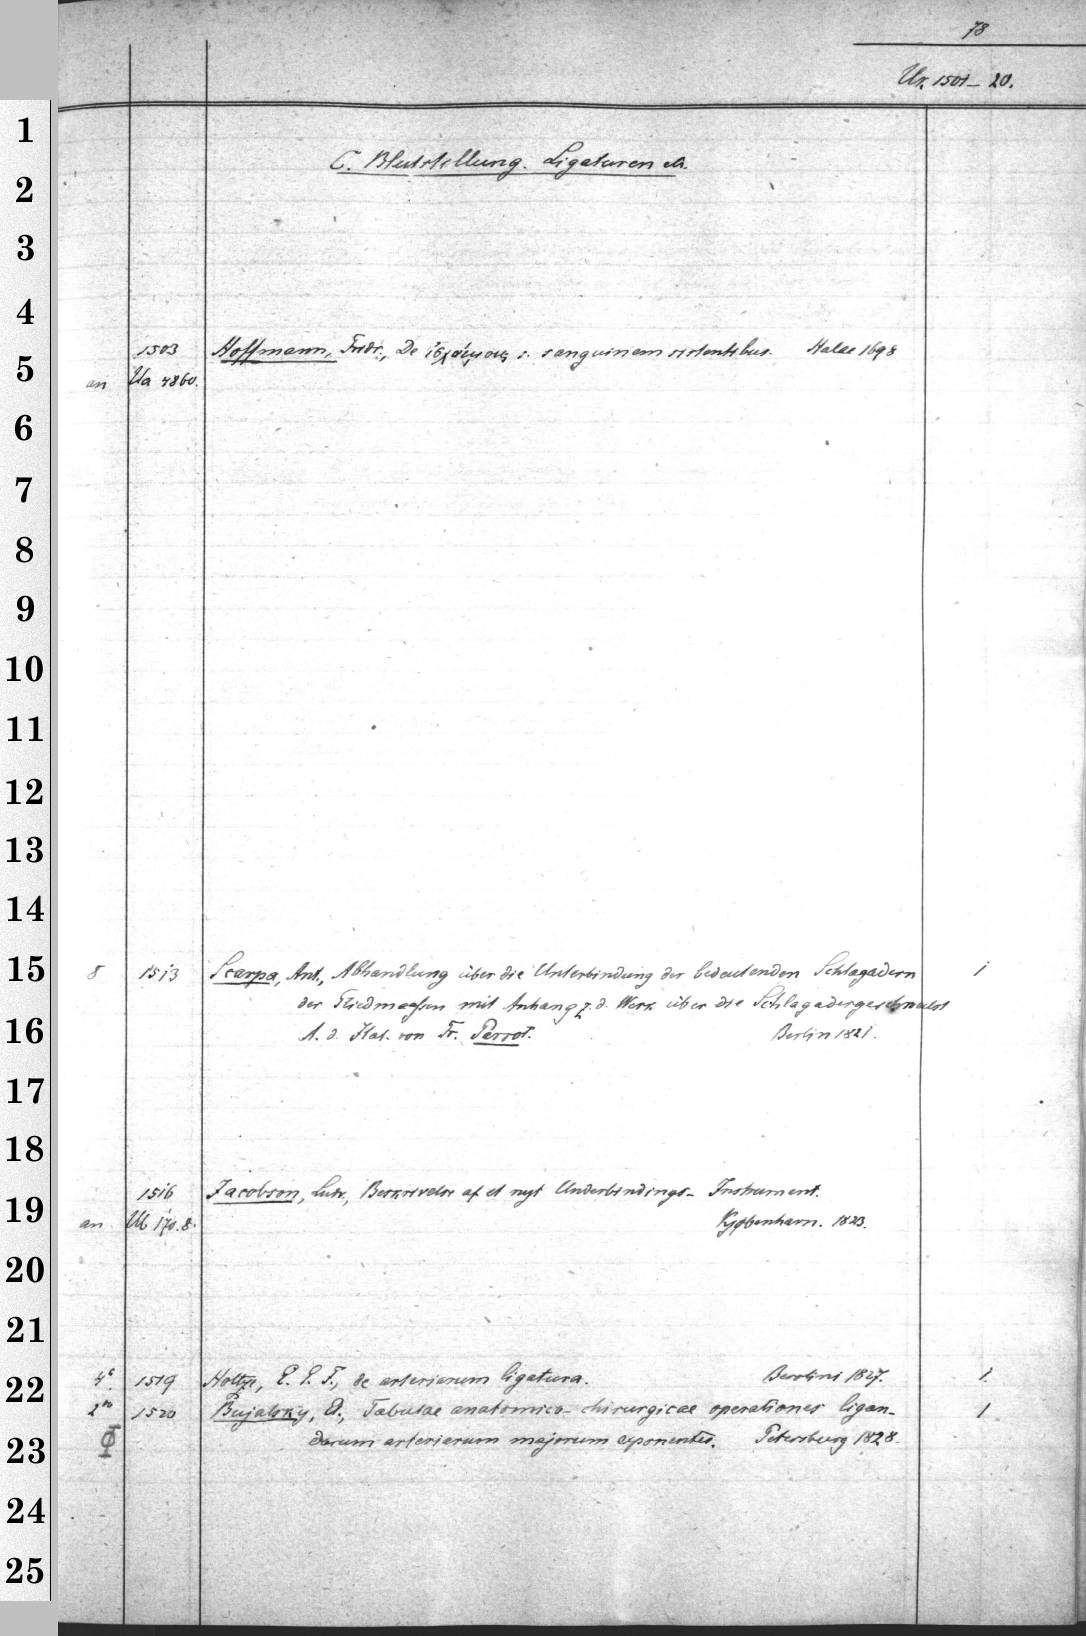 78
Ux 1501-20.
C. Blutstellung. Ligaturen etc.
1503 Hoffmann, Fridr., De s. sanguinem sistentibus. Halae 1698
an Ua 4860.
8 1513 Scarpa, Ant., Abhandlung über die Unterbindung der bedeutenden Schlagadern 1
der Gliedmaaßen mit Anhang z. d. Werk über die Schlagadergeschwulst
A. d. Ital. von Fr. Parrot. Berlin 1821.
1516 Jacobson, Ludv., Beskrivelse af et nyt Underbindings- Instrument.
an Ub 170.8. Kjøbenhavn. 1823.
4° 1519 Holtze, E. E. F., de arteriarum ligatura. Berolini 1827. 1
2° 1520 Bujalsky, El., Tabulae anatomico-chirurgicae operationes ligan- 1
darum arteriarum majorum exponentes. Petersburg 1828.
1
2
3
4
5
6
7
8
9
10
11
12
13
14
15
16
17
18
19
20
21
22
23
24
25